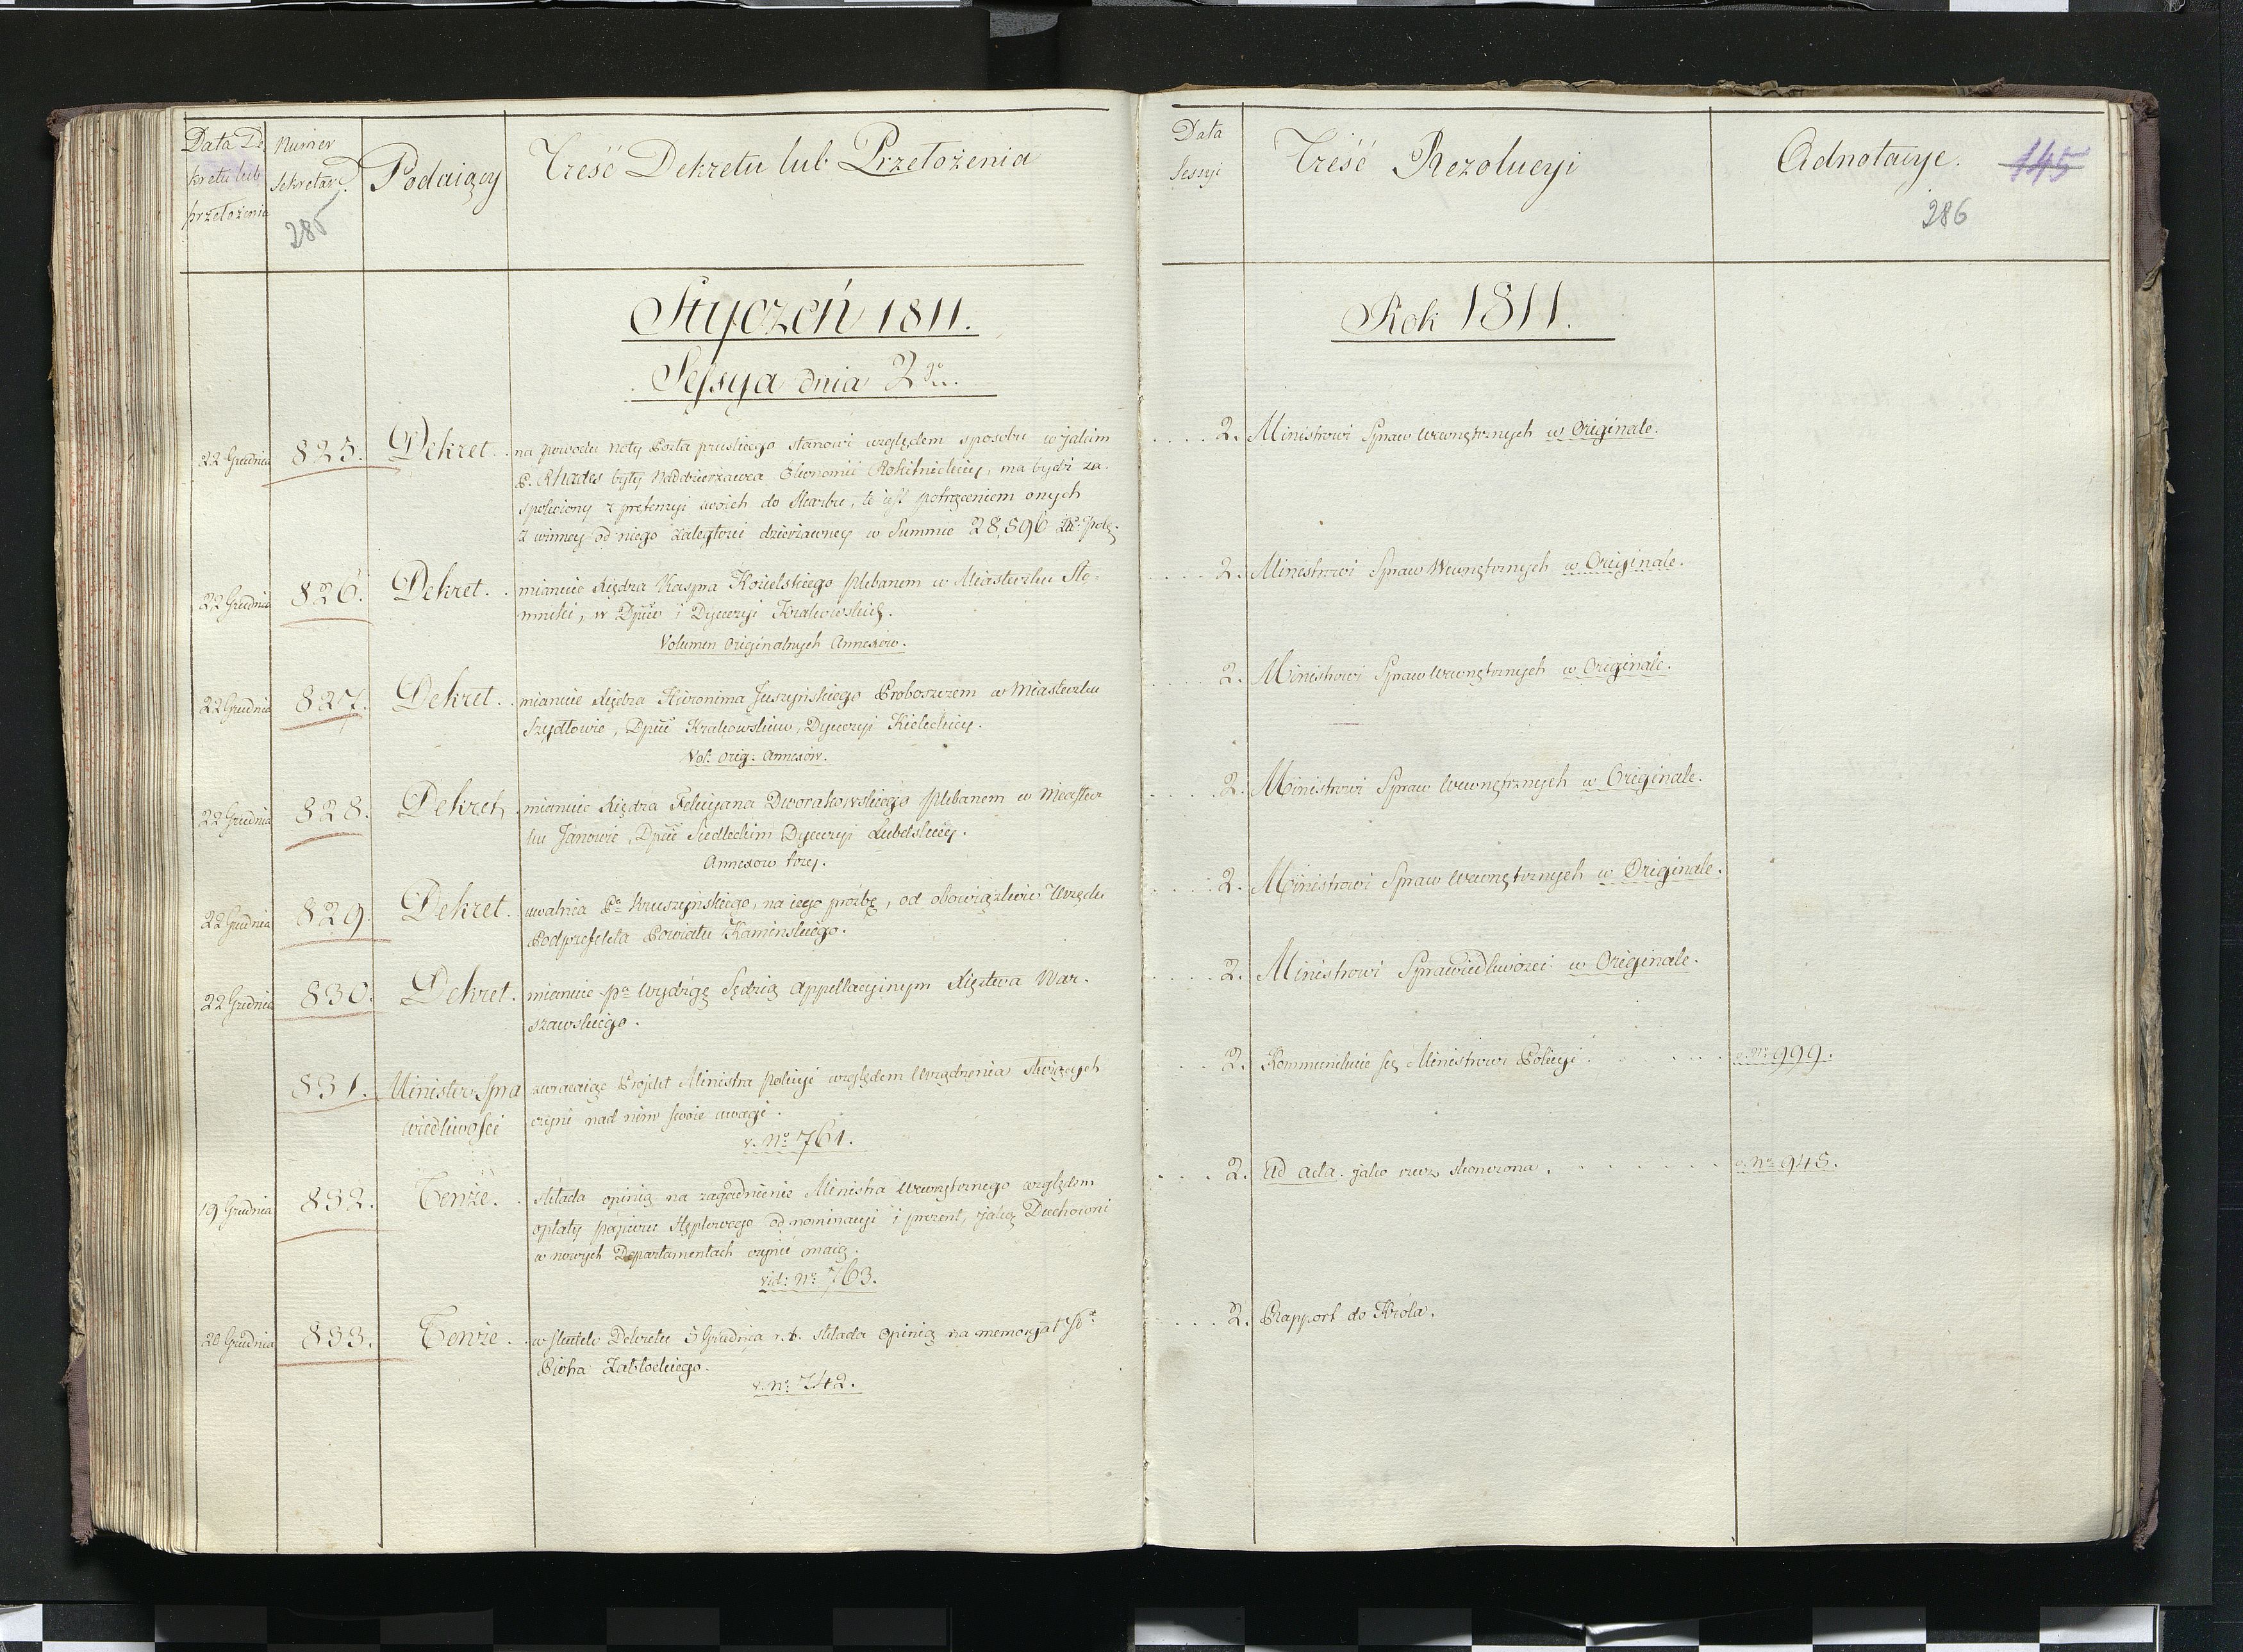 Data De
kretu lub
przełożenia
Numer
Sekretar.
285
Podaiący
Treść Dekretu lub Przełożenia
Styczeń 1811.
Sessya dnia 2go
22 Grudnia 825. Dekret. na powodu noty Posła pruskiego stanowi względem sposobu w jakim
P. Rhades były Naddzierżawca Ekonomii Rokitnickiey, ma bydź za-
spokoiony z pretensyi swoich do Skarbu, to iest potrąceniem onych
z winney od niego zaległości dzierżawney w Summie 28,596
22 Grudnia 826. Dekret. mianuie Xiędza Kaspra Kozielskiego plebanem w Miasteczku Sło-
mniki, w Dpcie i Dyecezyi Krakowskiey.
Volumen Originalnych Annexow.
22 Grudnia 827. Dekret. mianuie Xiędza Hieronima Juszyńskiego Proboszczem w Miasteczku
Szydłowie, Dpcie Krakowskim, Dyecezyi Kieleckiey.
Vol. orig. Annexów.
22 Grudnia 828. Dekret, mianuie Xiędza Felicyana Dworakowskiego plebanem w Miastecz
ku Janowie, Dpcie Siedleckim Dyecezyi Lubelskiey.
Annexow trzy.
22 Grudnia 829. Dekret. uwalnia Pa Kruszyńskiego, na iego prożbę, od obowiązków Urzędu
Podprefekta Powiatu Kamińskiego.
22 Grudnia 830. Dekret. mianuie pa Wydrigę Sędzią Appellacyinym Xięztwa War-
szawskiego.
831. Minister Spra
wiedliwości
zwracaiąc Projekt Ministra policyi względem Urządzenia służących
czyni nad nim swoie uwagi.
v. No 761.
19 Grudnia 832. Tenże. składa opinią na zagadnienie Ministra Wewnętrznego względem
opłaty papieru stęplowego od nominacyi i prezent, jaką Duchowni
w nowych Departamentach czynić maią.
vid: No 763.
20 Grudnia 833. Tenże. w skutek Dekretu 5 Grudnia r. b. składa opinią na memoryał
Piotra Zabłockiego.
v. No 742.
Data
Sessyi
Treść Rezolucyi
Adnotacye.
145
286
Rok 1811.
2. Ministrowi Spraw Wewnętrznych w Originale.
2. Ministrowi Spraw Wewnętrznych w Originale.
2. Ministrowi Spraw Wewnętrznych w Originale.
2. Ministrowi Spraw Wewnętrznych w Originale.
2. Ministrowi Spraw Wewnętrznych w Originale.
2. Ministrowi Sprawiedliwości w Originale.
2. Kommunikuie się Ministrowi Policyi. v. No 999.
2. Ad acta. jako rzecz skończona. v. No 945.
2. Rapport do Króla.